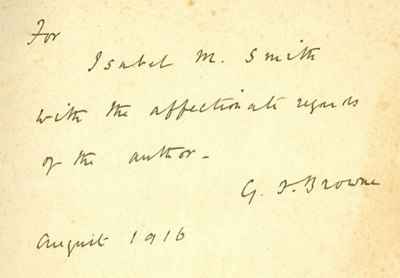 For
Isabel M. Smith
with the affectionate regards
of the author -
G. F. Browne
August 1916